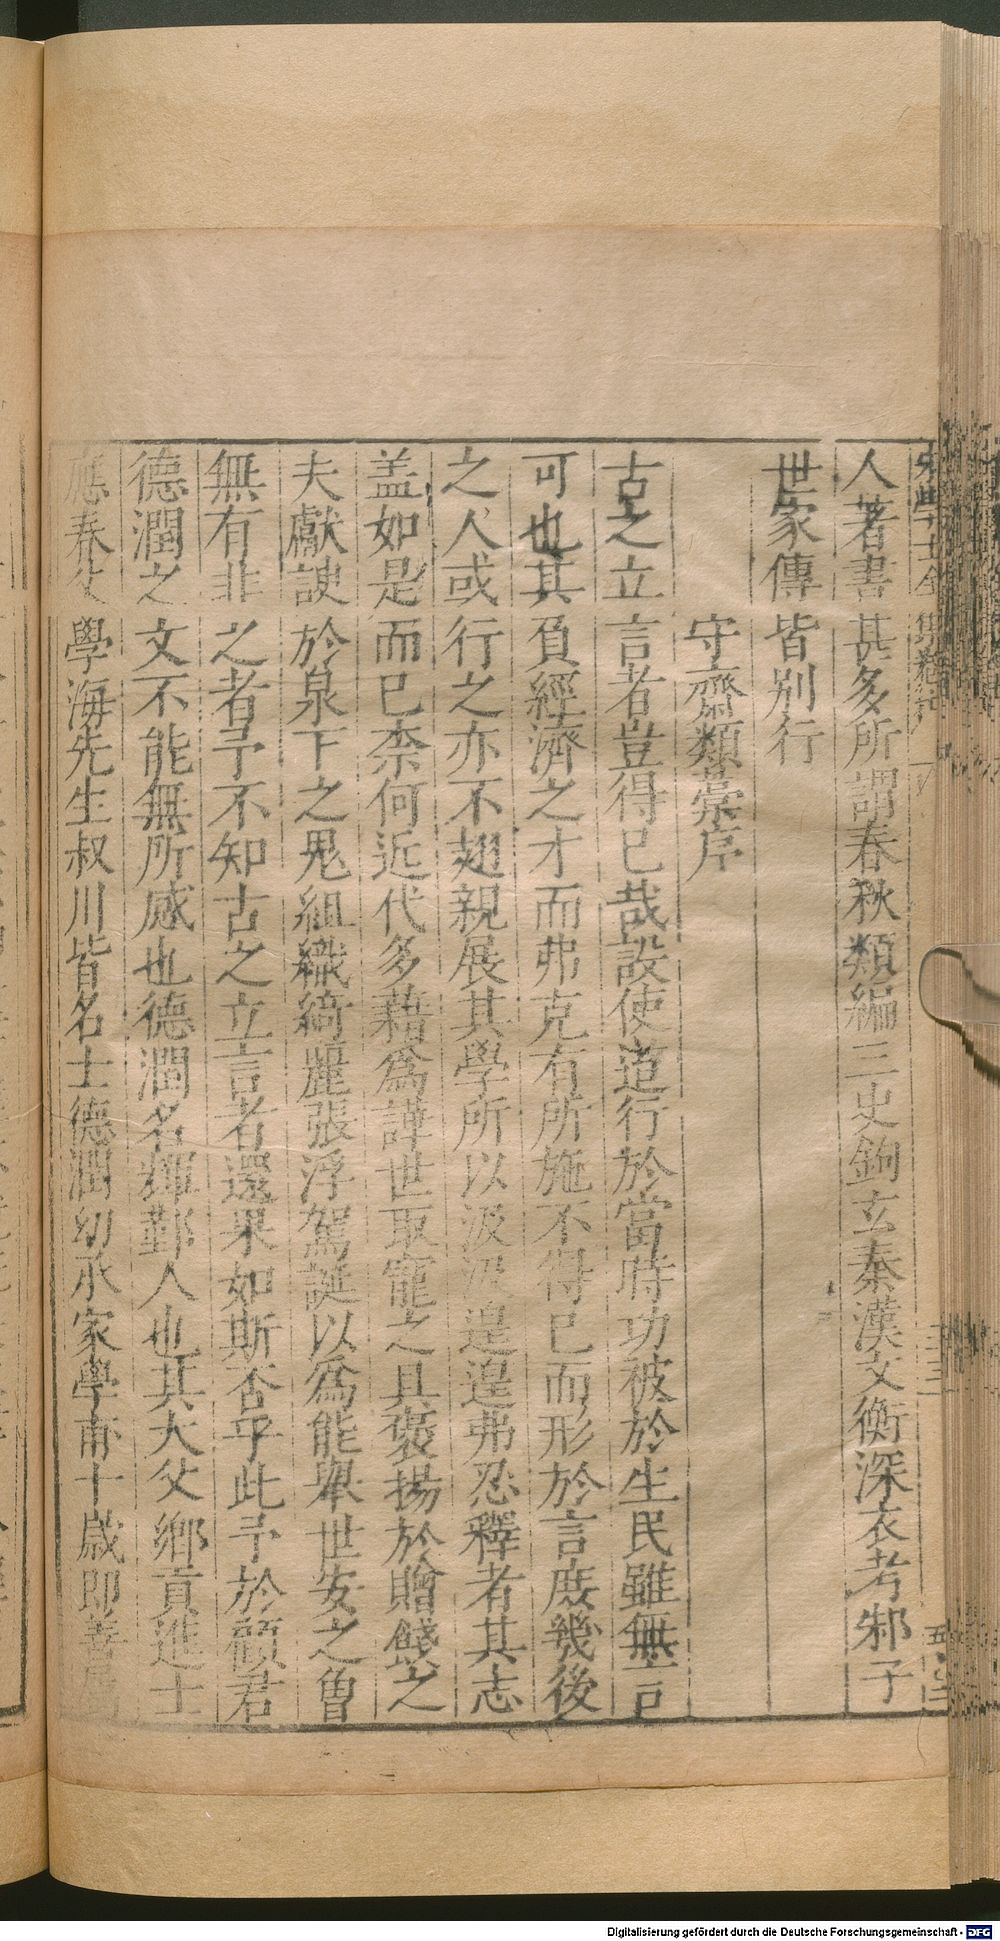 人著書甚多所謂春秋類編三史鉤玄秦漢文衡深衣考邾子
世家傳皆別行
守齋類藁序
古之立言者豈得已哉設使道行於當時功被於生民雖無言
可也其負經濟之才而弗克有所施不得已而形於言庻幾後
之人或行之亦不翅親展其學所以汲汲遑遑弗忍釋者其志
盖如是而已柰何近代多藉為譁世取寵之具褒揚於贈餞之
夫獻諛於泉下之鬼組織綺麗張浮駕誕以為能舉世安之曽
無有非之者予不知古之立言者還果如斯否乎此予於顧君
德潤之文不能無所感也德潤名輝鄞人也其大父鄉貢進士
應春父學海先生叔川皆名士德潤幼承家學甫十歲即善
Digitalisierung gefördert durch die Deutsche Forschungsgemeinschaft - DFG